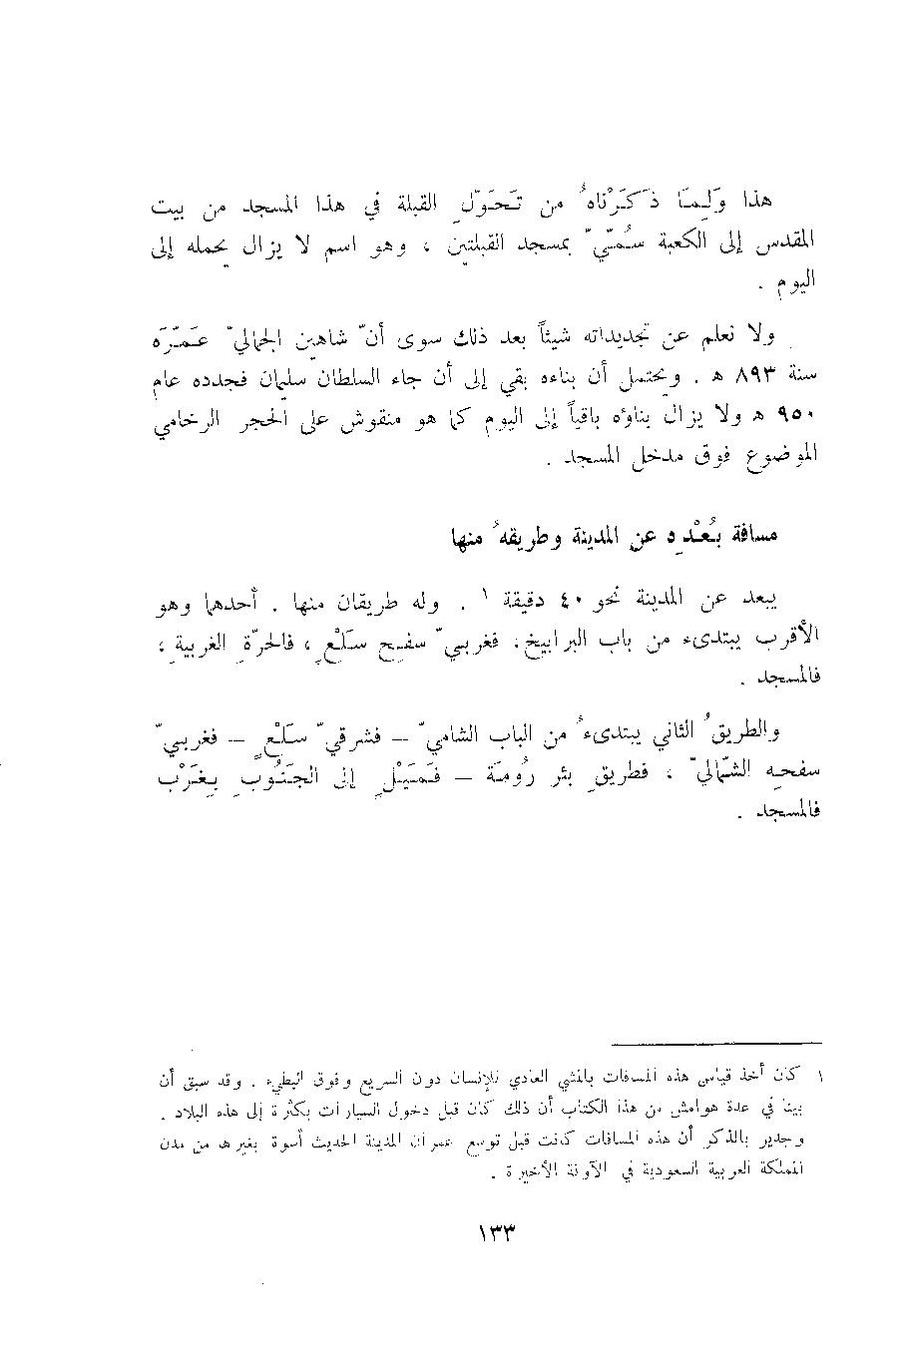 هذا وَلِمَا ذَكَرْناهُ من تَحَوّلِ القبلة في هذا المسجد من بيت
المقدس إلى الكعبة سُمّيّ بمسجد القبلتين ، وهو اسم لا يزال يحمله إلى
اليوم .
ولا نعلم عن تجديداته شيئاً بعد ذلك سوى أنّ شاهين الجماليّ عَمّرَه
سنة ٨٩٣ ه . ويحتمل أن بناءه بقي إلى أن جاء السلطان سليمان فجدده عام
٩٥٠ ه ولا يزال بناؤه باقياً إلى اليوم كما هو منقوش على الحجر الرخامي
الموضوع فوق مدخل المسجد .
مسافة بُعْدِه عن المدينة وطريقهُ منها
يبعد عن المدينة نحو ٤٠ دقيقة ١ . وله طريقان منها . أحدهما وهو
الأقرب يبتدىء من باب البرابيخ ؛ فغربيّ سفيح سَلْعٍ ، فالحرّةِ الغربيةِ ؛
فالمسجد .
والطريقُ الثاني يبتدىءُ من الباب الشاميّ – فشرقيّ سَلْعٍ – فغربيّ
سفحِه الشّماليّ ؛ فطريقِ بئر رُومَة – فَمَيْلٍ إلى الجَنُوبِ بِغَرْب
فالمسجد .
١ كان أخذ قياس هذه المسافات بالمشي العادي للإنسان دون السريع وفوق البطيء . وقد سبق أن
بينا في عدة هوامش من هذا الكتاب أن ذلك كان قبل دخول السيارات بكثرة إلى هذه البلاد .
وجدير بالذكر أن هذه المسافات كانت قبل توسع عمران المدينة الحديث أسوة بغيرها من مدن
المملكة العربية السعودية في الآونة الأخيرة .
١٣٣